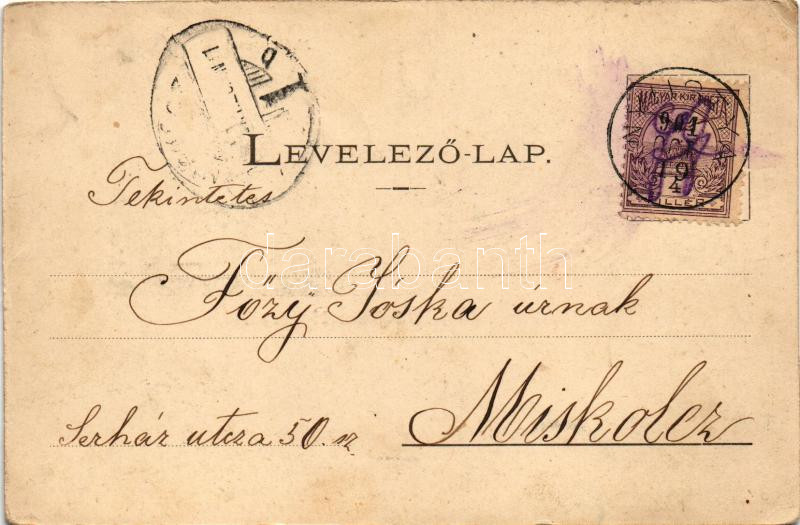 LEVELEZŐ-LAP.
MAGYAR KIR. POSTA
901
OCT
19
4
FILLÉR
Tekintetes
Főzy Jóska urnak
Miskolcz
Serház utcza 50. sz
darabanth